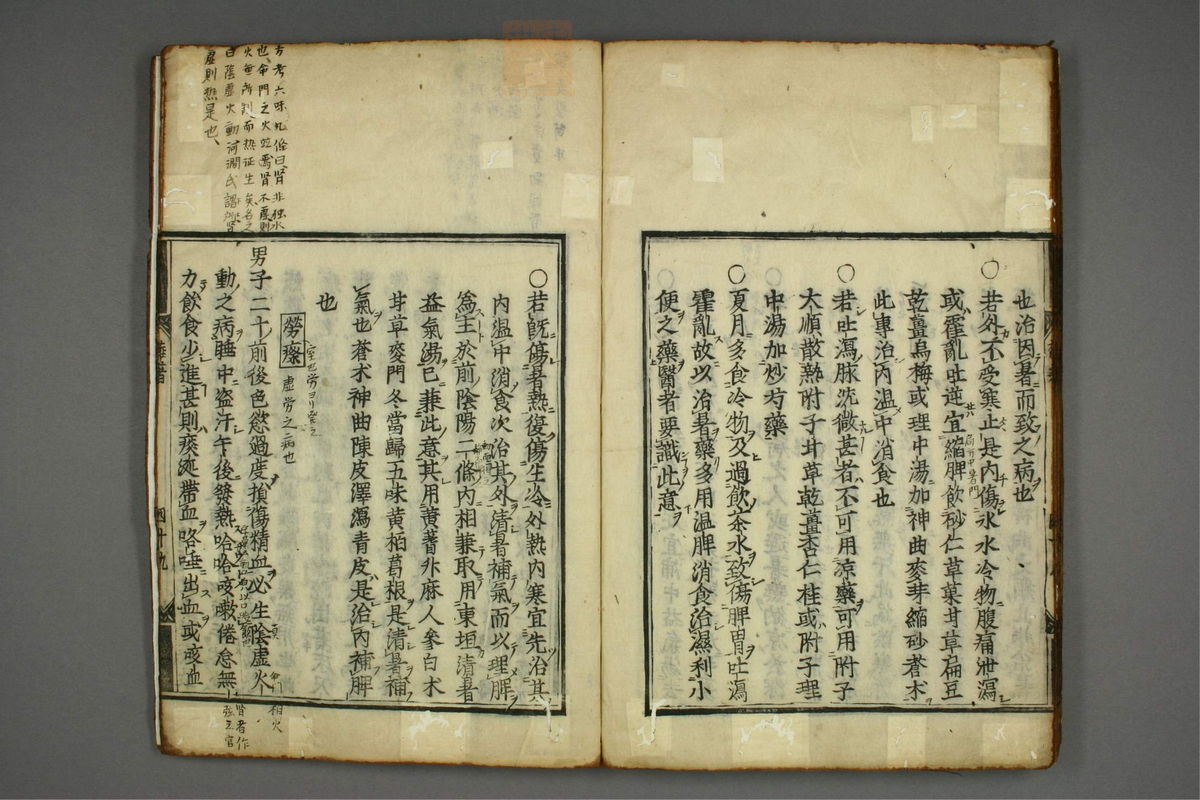 也治因暑而致之病也
○若外不受寒止是内傷氷水冷物腹痛泄瀉
或霍亂吐逆宜縮脾飲砂仁草菓甘草扁豆
乾薑烏梅或理中湯加神曲麥芽縮砂蒼朮
此專治内温中消食也
○若吐瀉脉沈微甚者不可用凉藥可用附子
大順散熱附子甘草乾薑杏仁桂或附子理
中湯加炒芍藥
○夏月多食冷物及過飲茶水致傷脾胃吐瀉
霍亂故以治暑藥多用温脾消食治濕利小
便之藥醫者要識此意
○若既傷暑熱復傷生冷外熱内寒宜先治其
内温中消食次治其外清暑補氣而以理脾
爲主於前陰陽二條内相兼取用東垣清暑
益氣湯已兼此意其用黄蓍升麻人參白朮
甘草麥門冬當歸五味黄栢葛根是清暑補
氣也蒼朮神曲陳皮澤瀉青皮是治内補脾
也
勞瘵
虚労之病也
男子二十前後色慾過度損傷精血必生陰虚火
動之病睡中盗汗午後發熱哈哈咳嗽倦怠無
力飲食少進甚則痰涎帶血咯唾出血或咳血
方考六味丸條曰腎非独水
也命門之火並焉腎不虚則
而热证生矣名之
曰陰虚火動河間氏謂腎
虚則热是也
相火
腎者作
強之官